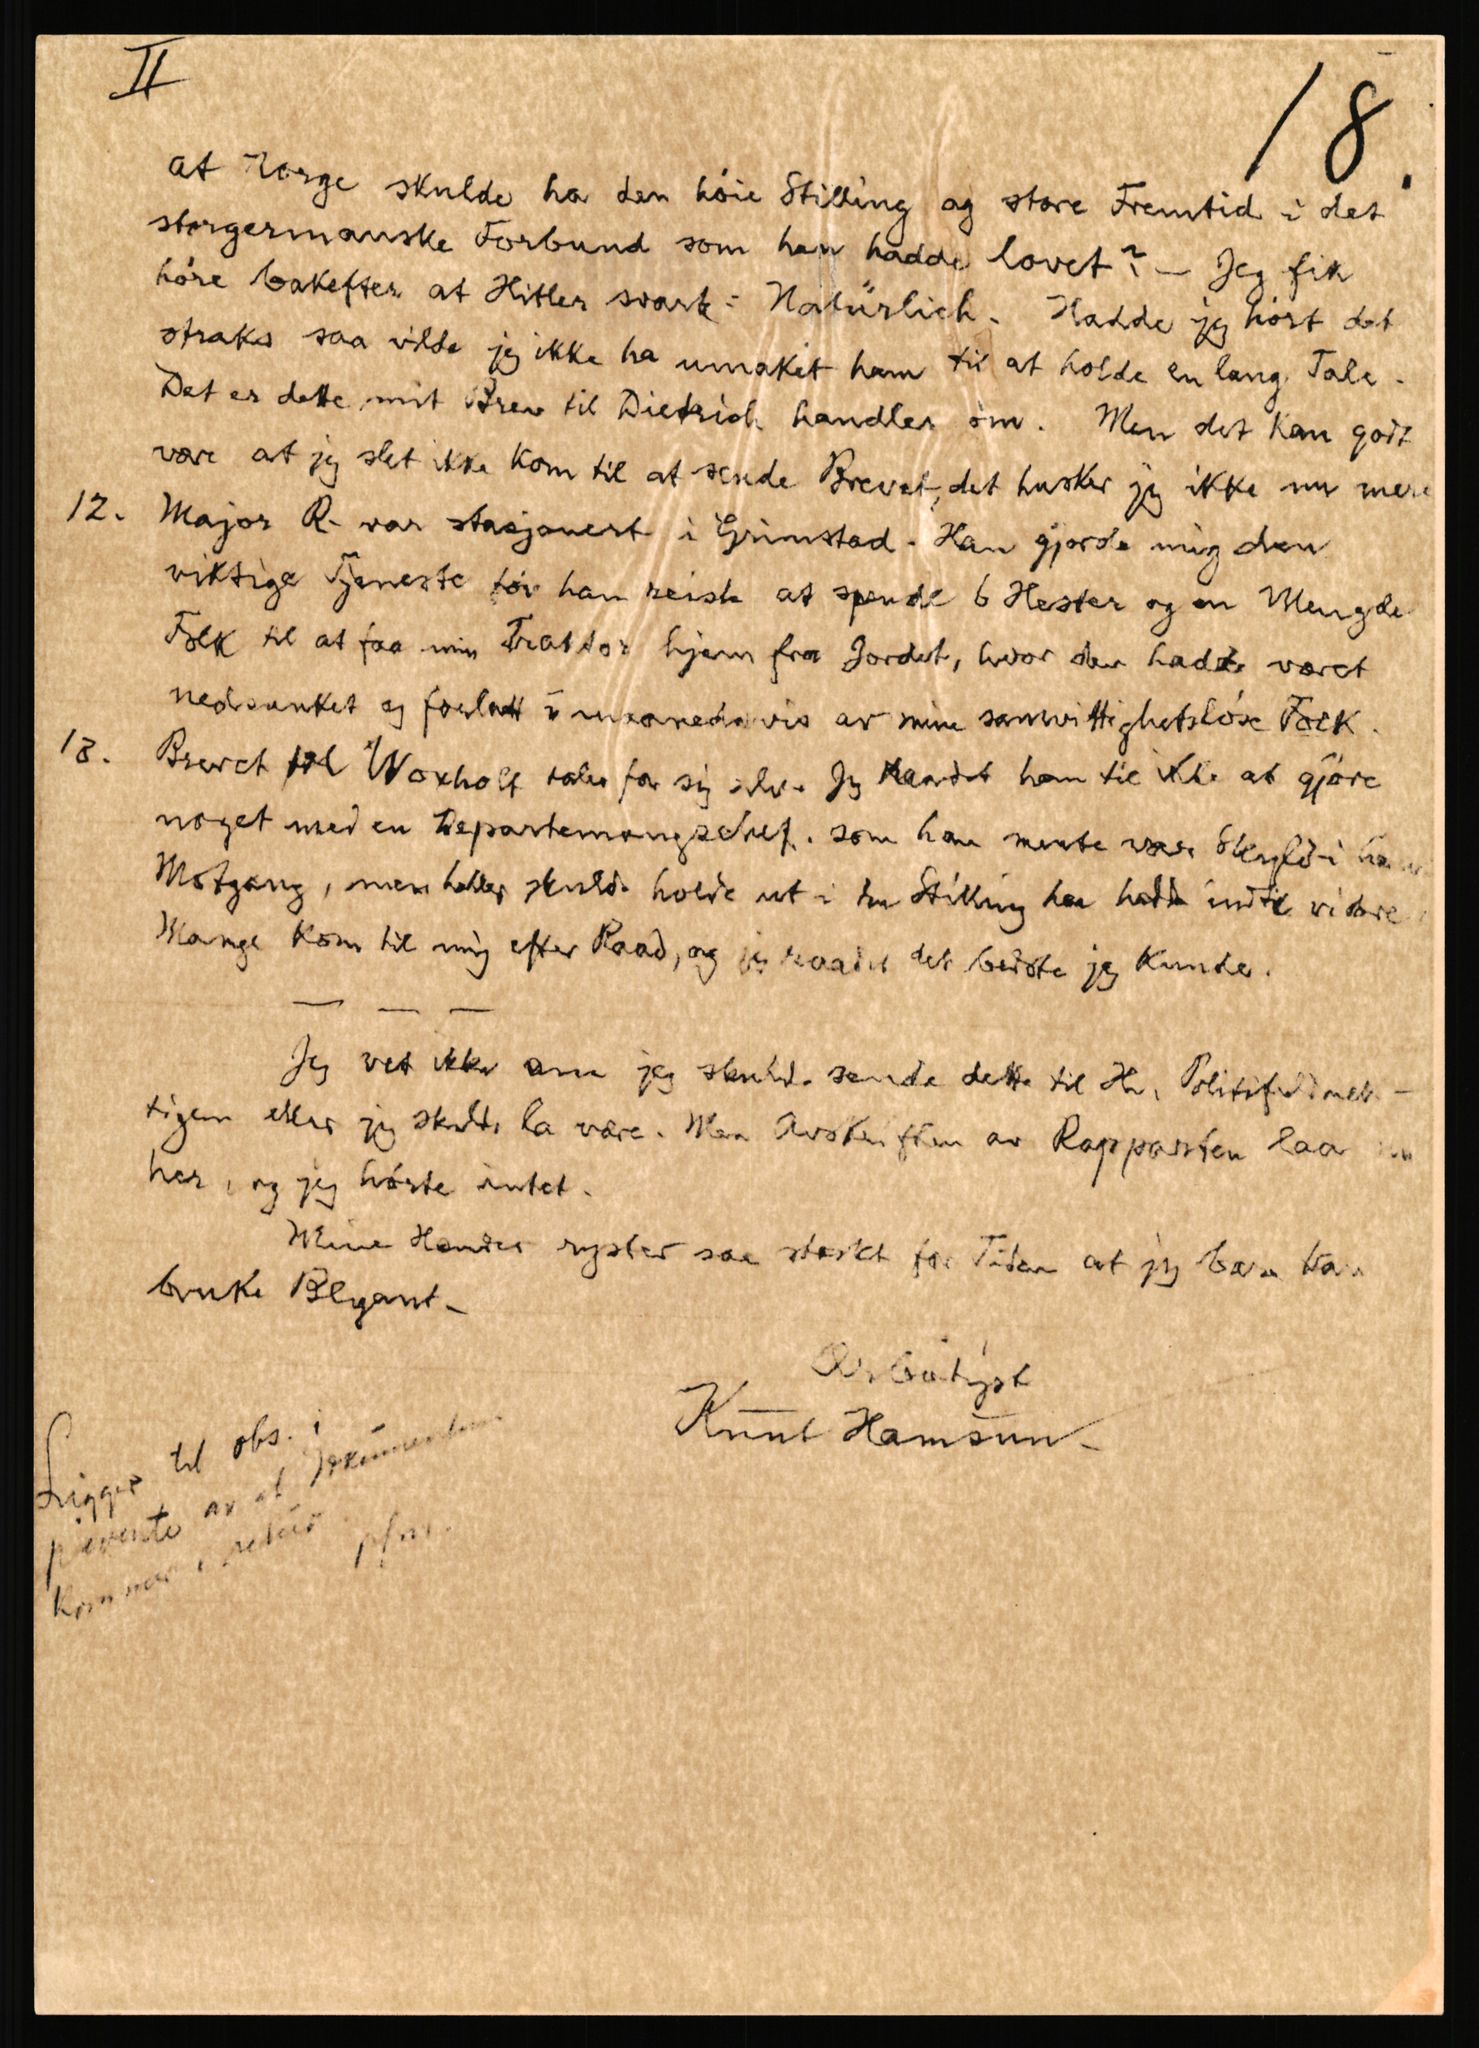 II
18.
at Norge skulde ha den høie Stilling og store Fremtid i det
storgermanske Forbund som han hadde lovet? — Jeg fik
høre bakefter at Hitler svarte: Natürlich. Hadde jeg hørt det
straks saa vilde jeg ikke ha umaket ham til at holde en lang Tale.
Det er dette mit Brev til Dietrich handler om. Men det kan godt
være at jeg slet ikke kom til at sende Brevet, det husker jeg ikke nu mere
12. Major R. var stasjonert i Grimstad. Han gjorde mig den
viktige Tjeneste før han reiste at spende 6 Hester og en Mengde
Folk til at faa min Traktor hjem fra Jordet, hvor den hadde været
nedsunket og forlatt i maanedsvis av mine samvittighetsløse Folk.
13. Brevet til Woxholt taler for sig selv. Jeg raadet ham til ikke at gjøre
noget med en Departemangschef. som han mente var Skyld i hans
Motgang, men heller skulde holde ut i den Stilling han hadde indtil videre
Mange kom til mig efter Raad, og jeg raadet det bedste jeg kunde.
— — —
Jeg vet ikke om jeg skulde sende dette til Hr. Politifuldmek-
tigen eller jeg skulde la være. Men Avskriften av Rapporten laa nu
her, og jeg hørte intet.
Mine Hænder ryster saa sterkt for Tiden at jeg bare kan
bruke Blyant.
Ærbødigst
Knut Hamsun.
Ligger til obs. i
påvente av at dokumentene
kommer i retur.